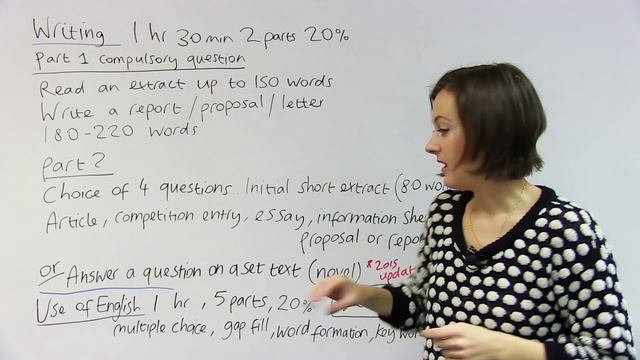 Writing 1 hr 30 min 2 parts 20%
Part 1 compulsory question
Read an extract up to 150 words
Write a report / proposal / letter
180-220 words
Part 2
Choice of 4 questions. Initial short extract (80
Article, competition entry, essay, information
proposal or
or Answer a question on a set text (novel) * 2015
Use of English 1 hr, 5 parts, 20%
multiple choice, gap fill, word formation, key